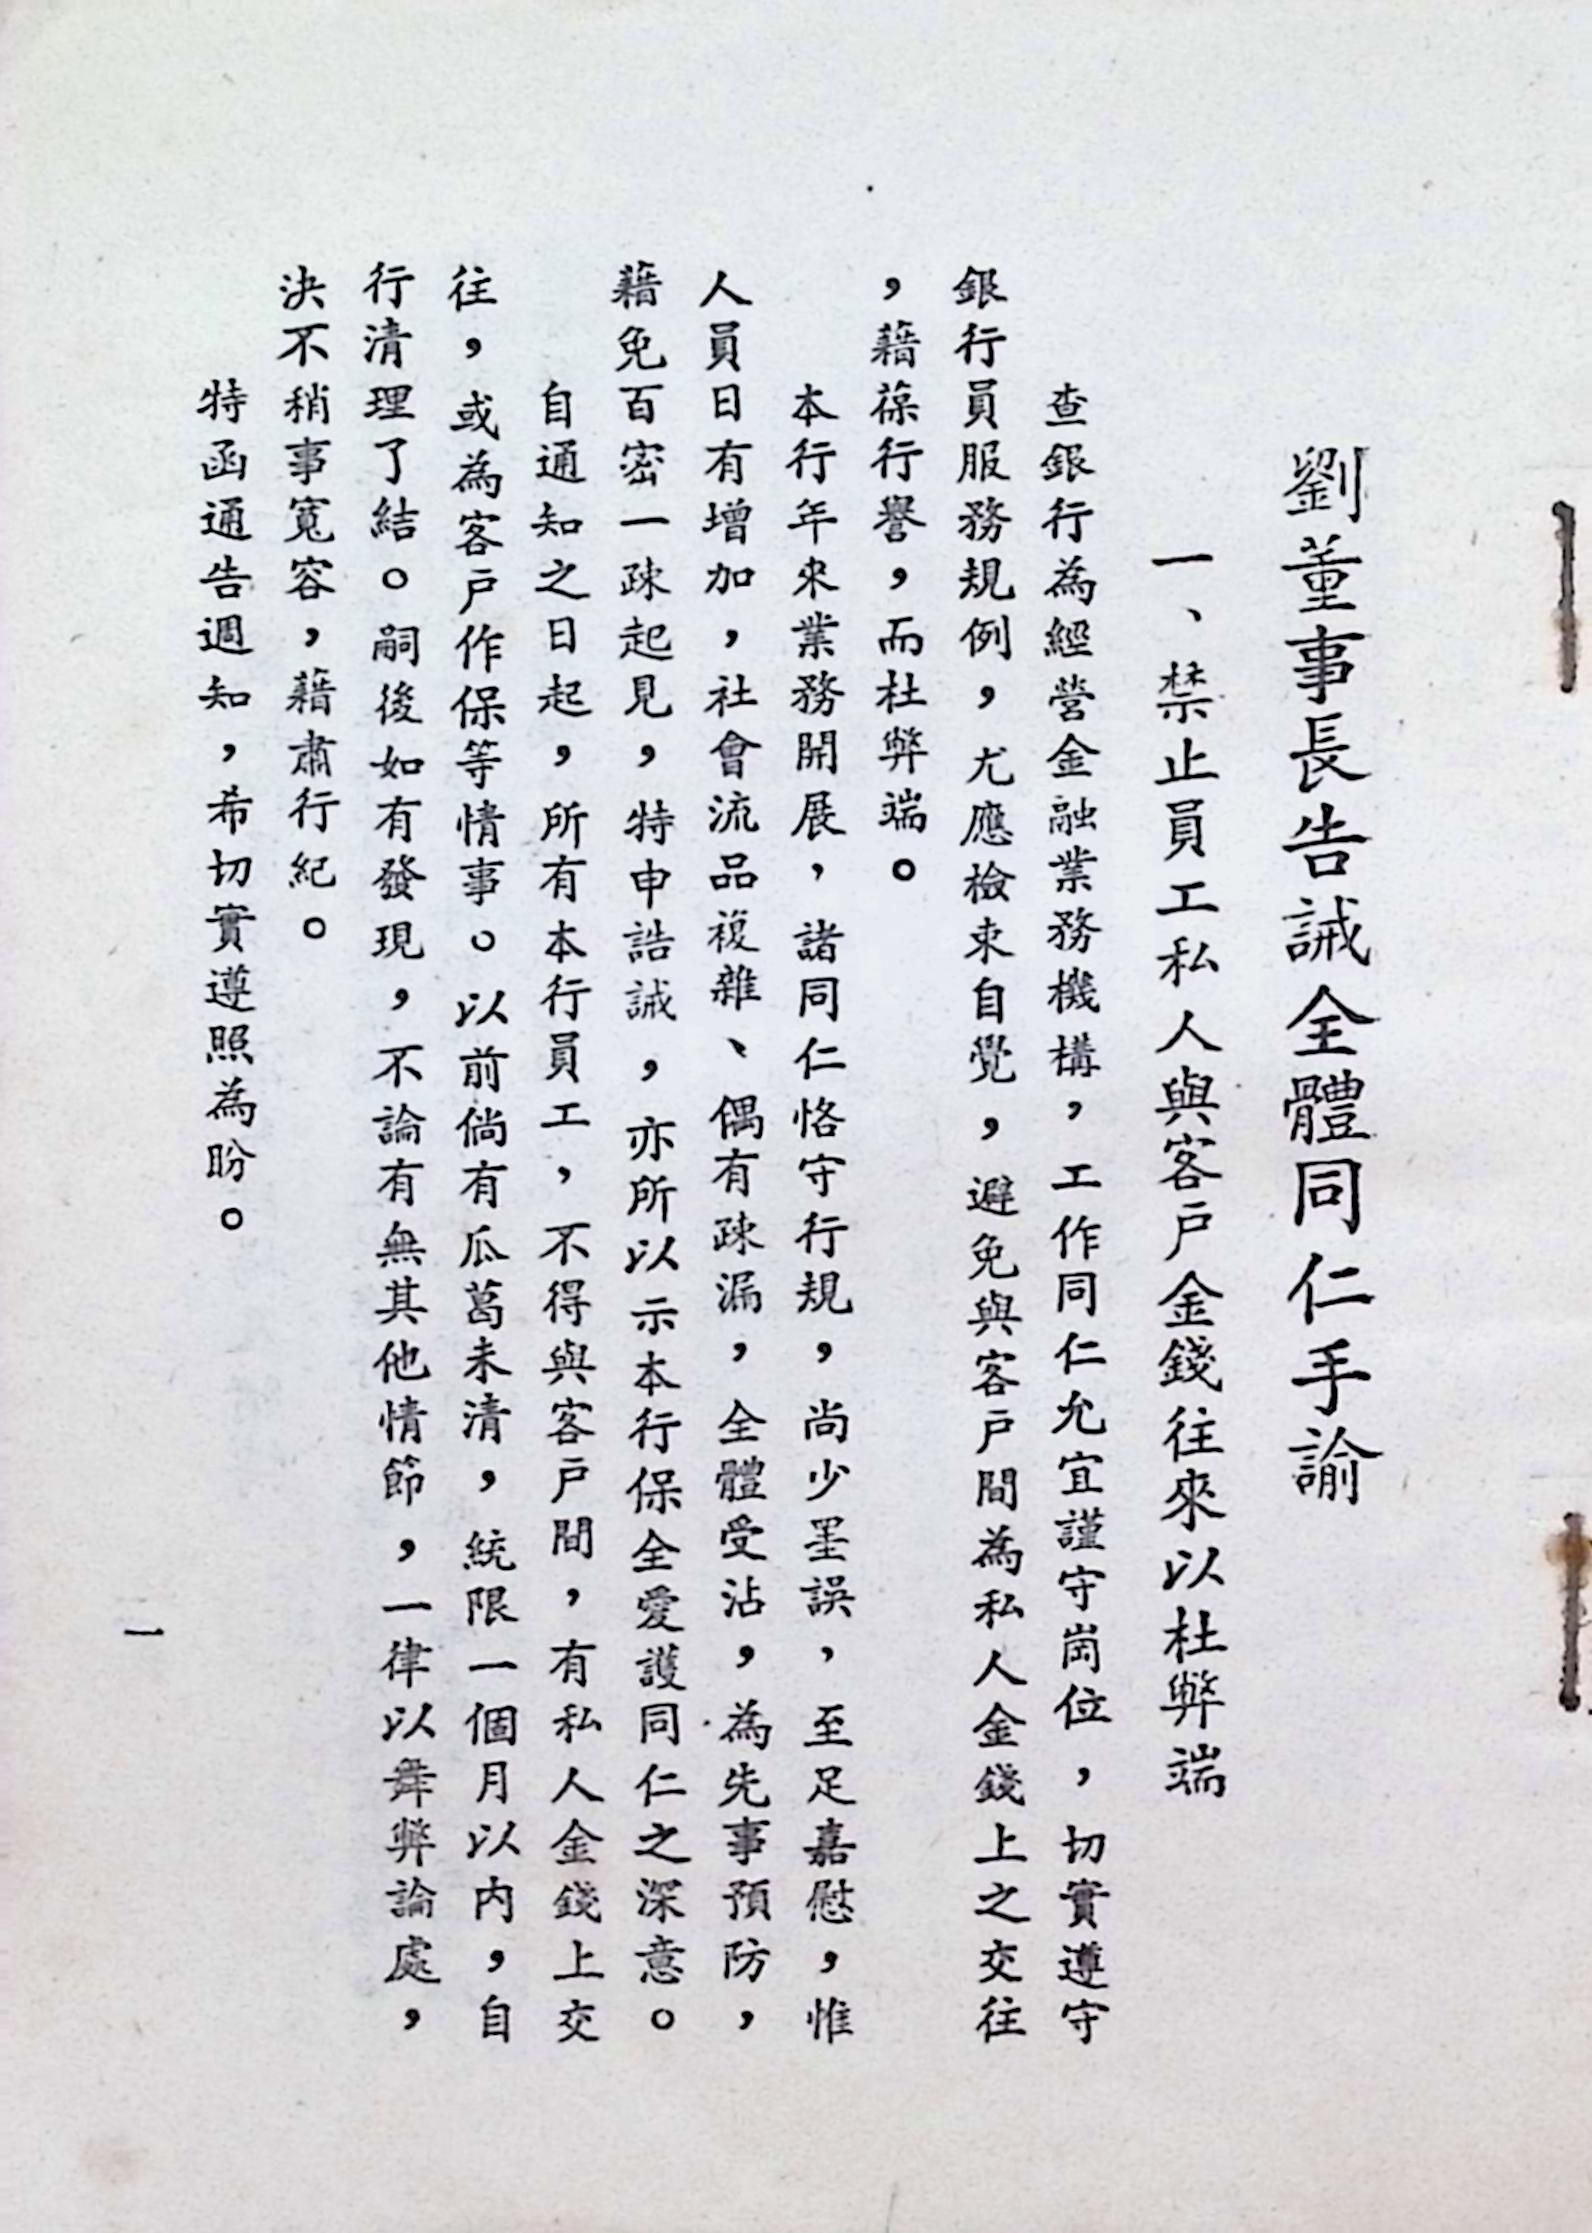 劉董事長告誡全體同仁手諭
一、禁止員工私人與客戶金錢往來以杜弊端
查銀行為經營金融業務機構，工作同仁允宜謹守崗位，切實遵守
銀行員服務規例，尤應檢束自覺，避免與客戶間為私人金錢上之交往
，藉葆行譽，而杜弊端。
本行年來業務開展，諸同仁恪守行規，尚少罣誤，至足嘉慰，惟
人員日有增加，社會流品複雜、偶有疎漏，全體受沾，為先事預防，
藉免百密一疎起見，特申誥誡，亦所以示本行保全愛護同仁之深意。
自通知之日起，所有本行員工，不得與客戶間，有私人金錢上交
往，或為客戶作保等情事。以前倘有瓜葛未清，統限一個月以內，自
行清理了結。嗣後如有發現，不論有無其他情節，一律以舞弊論處，
決不稍事寬容，藉肅行紀。
特函通告週知，希切實遵照為盼。
一